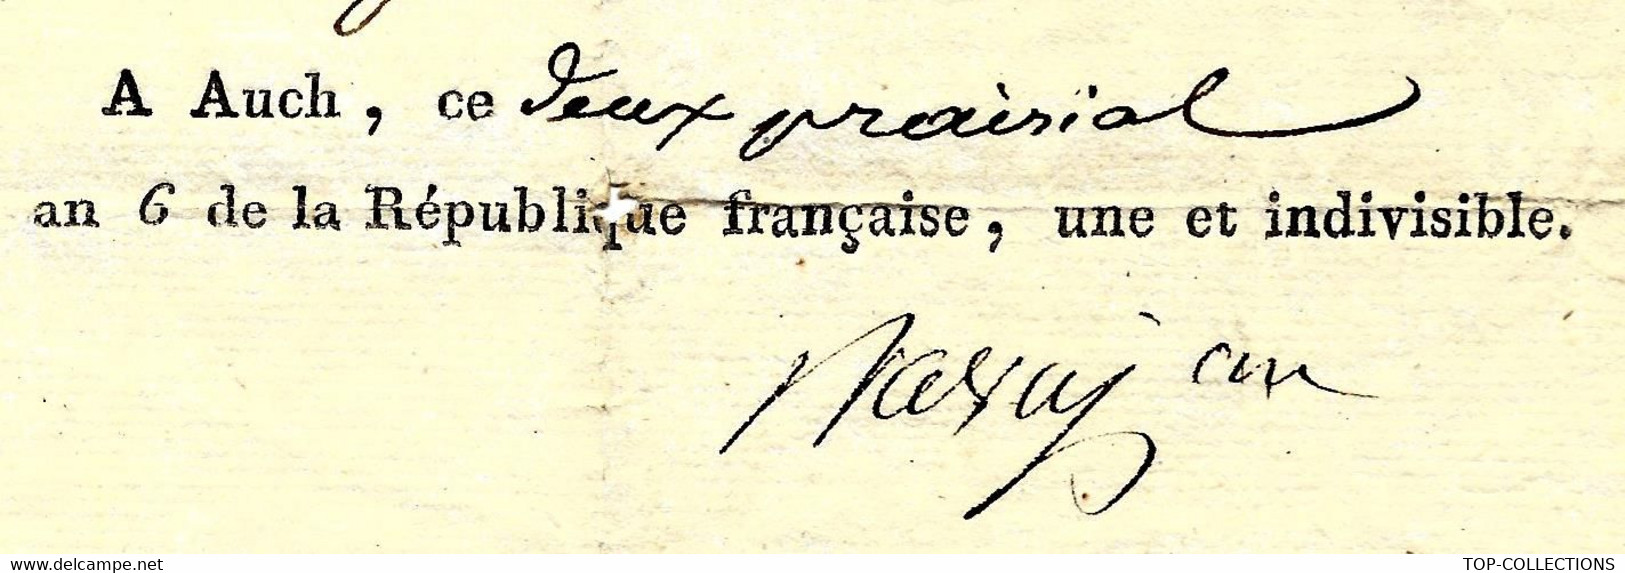 A Auch, ce deux prairial
an 6 de la République française, une et indivisible.
delcampe.net
TOP-COLLECTIONS